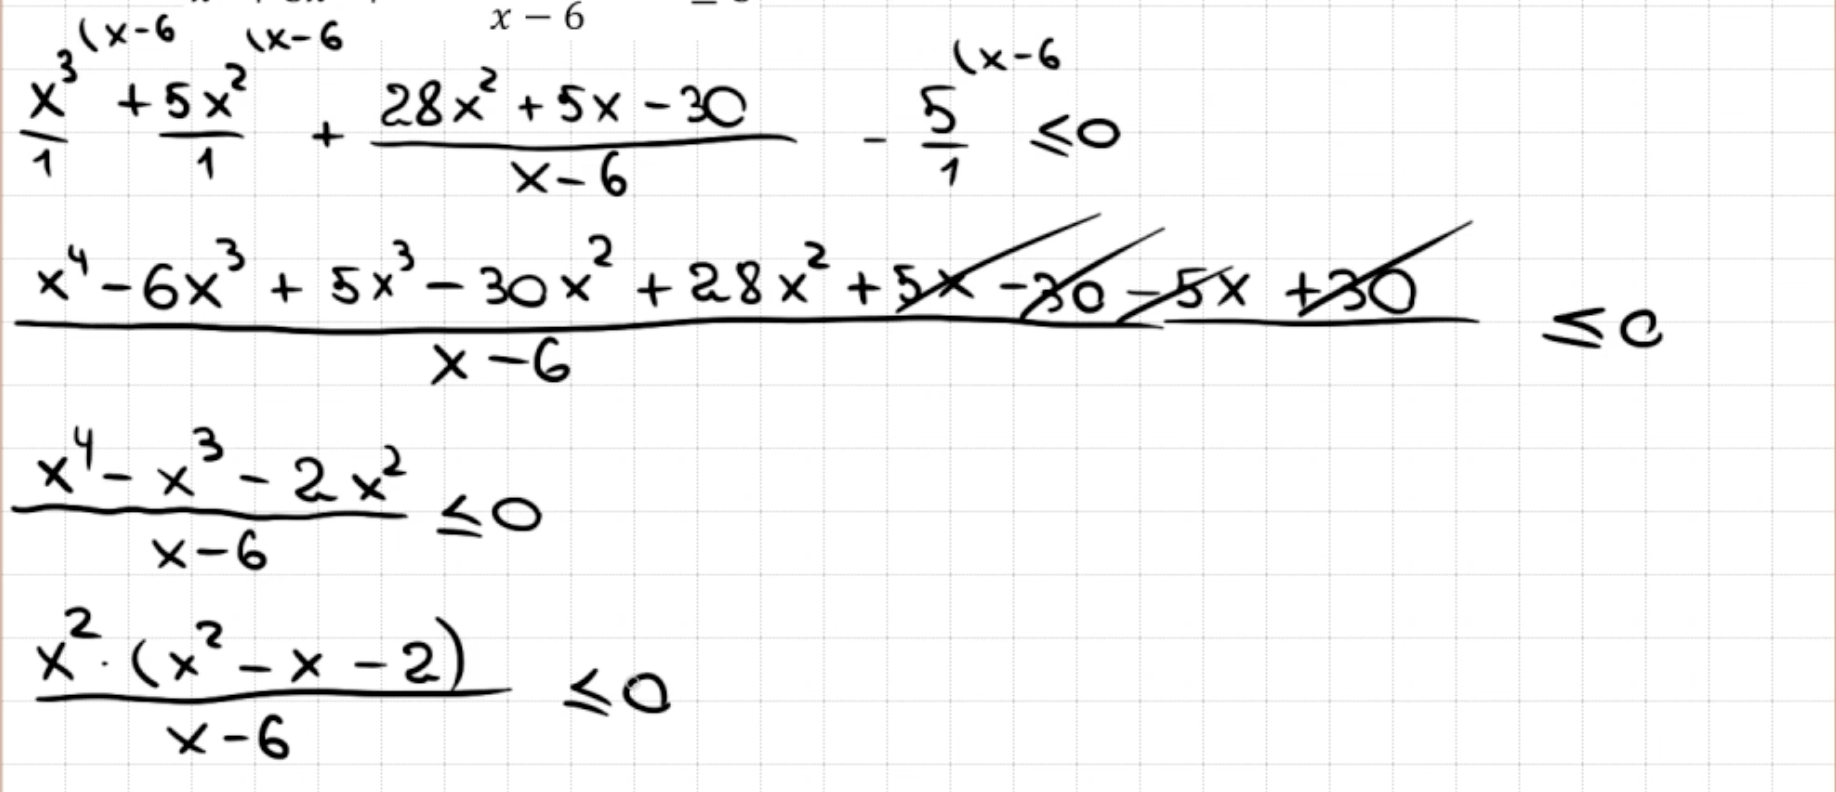 x − 6
x³/1 ⁽ˣ⁻⁶ + 5x²/1 ⁽ˣ⁻⁶ + (28x² + 5x − 30)/(x − 6) − 5/1 ⁽ˣ⁻⁶ ≤ 0
(x⁴ − 6x³ + 5x³ − 30x² + 28x² + 5x − 30 − 5x + 30)/(x − 6) ≤ 0
(x⁴ − x³ − 2x²)/(x − 6) ≤ 0
(x² · (x² − x − 2))/(x − 6) ≤ 0